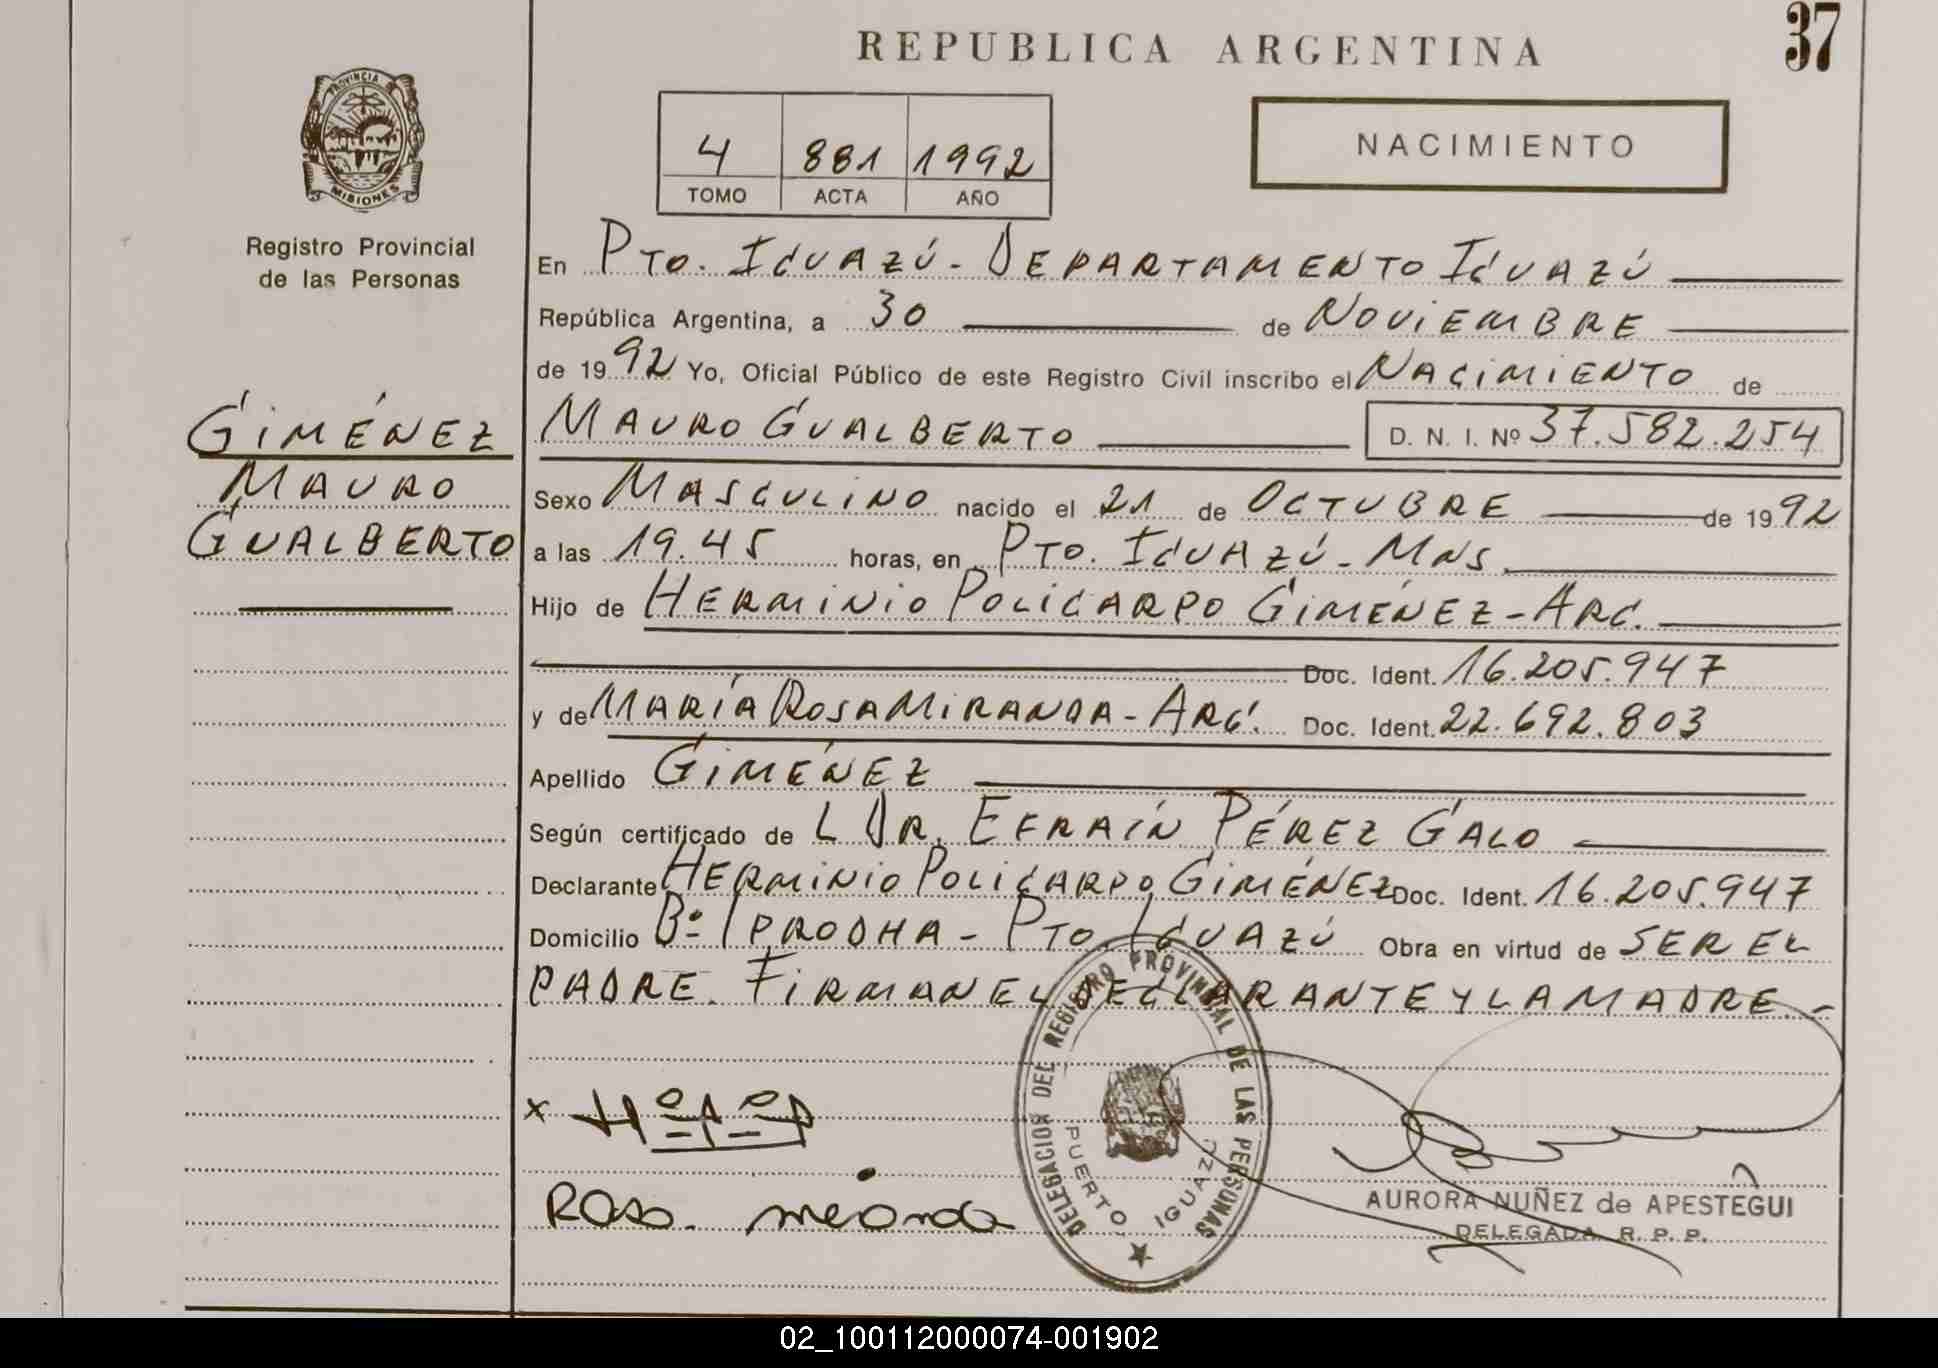 37
REPUBLICA ARGENTINA
PROVINCIA
MISIONES
Registro Provincial
de las Personas
4 881 1992
TOMO ACTA AÑO
NACIMIENTO
En Pto. Iguazú - Departamento Iguazú
República Argentina, a 30 de Noviembre
de 1992 Yo, Oficial Público de este Registro Civil inscribo el Nacimiento de
Giménez
Mauro
Gualberto
Mauro Gualberto D. N. I. Nº 37.582.254
Sexo Masculino nacido el 21 de Octubre de 1992
a las 19.45 horas, en Pto. Iguazú - Mns.
Hijo de Herminio Policarpo Giménez - Arg.
Doc. Ident. 16.205.947
y de María Rosa Miranda - Arg. Doc. Ident. 22.692.803
Apellido Giménez
Según certificado de L Dr. Efraín Pérez Galo
Declarante Herminio Policarpo Giménez Doc. Ident. 16.205.947
Domicilio Bº Iprodha - Pto. Iguazú Obra en virtud de ser el
padre. Firman el declarante y la madre.-
x
Rosa. miranda
DELEGACION DEL REGISTRO PROVINCIAL DE LAS PERSONAS
PUERTO IGUAZU
AURORA NUÑEZ de APESTEGUI
DELEGADA R. P. P.
02_100112000074-001902